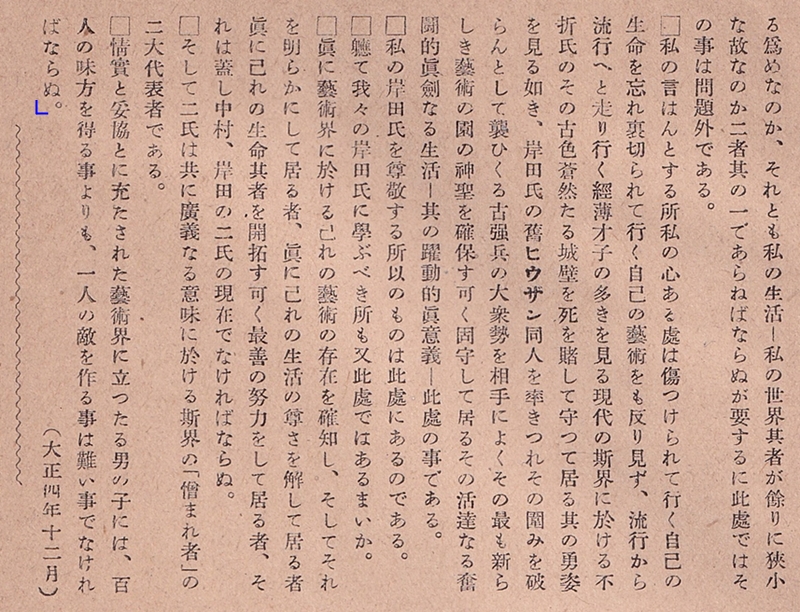 る爲めなのか、それとも私の生活―私の世界其者が餘りに狹小
な故なのか二者其の一であらねばならぬが要するに此處ではそ
の事は問題外である。
□私の言はんとする所私の心ある處は傷つけられて行く自己の
生命を忘れ裏切られて行く自己の藝術をも反り見ず、流行から
流行へと走り行く經薄才子の多きを見る現代の斯界に於ける不
折氏のその古色蒼然たる城壁を死を賭して守つて居る其の勇姿
を見る如き、岸田氏の舊ヒウザン同人を率きつれその圍みを破
らんとして襲ひくる古强兵の大衆勢を相手によくその最も新ら
しき藝術の園の神聖を確保す可く固守して居るその活達なる奮
鬪的眞劍なる生活―其の躍動的眞意義―此處の事である。
□私の岸田氏を尊敬する所以のものは此處にあるのである。
□軈て我々の岸田氏に學ぶべき所も又此處ではあるまいか。
□眞に藝術界に於ける己れの藝術の存在を確知し、そしてそれ
を明らかにして居る者、眞に己れの生活の尊さを解して居る者
眞に己れの生命其者を開拓す可く最善の努力をして居る者、そ
れは蓋し中村、岸田の二氏の現在でなければならぬ。
□そして二氏は共に廣義なる意味に於ける斯界の「僧まれ者」の
二大代表者である。
□情實と妥協とに充たされた藝術界に立つたる男の子には、百
人の味方を得る事よりも、一人の敵を作る事は難い事でなけれ
ばならぬ。
（大正四年十二月）